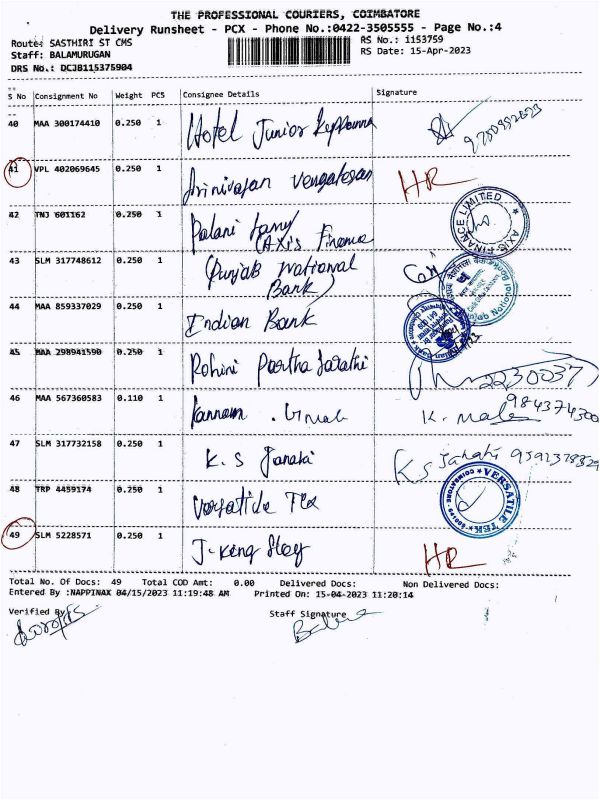 THE PROFESSIONAL COURIERS, COIMBATORE
Delivery Runsheet - PCX - Phone No.:0422-3505555 - Page No.:4
Route: SASTHIRI ST CMS
RS No.: 1153759
Staff: BALAMURUGAN
RS Date: 15-Apr-2023
DRS No.: DCJB115375904
S No Consignment No Weight PCS Consignee Details Signature
40 MAA 300174410 0.250 1 Hotel Junior
41 VPL 402069645 0.250 1 Srinivasan Vengatesan HR
42 TNJ 601162 0.250 1 Palani
(Axis Finance
AXIS FINANCE LIMITED
43 SLM 317748612 0.250 1 Punjab National
Bank)
44 MAA 859337029 0.250 1 Indian Bank
45 MAA 298941590 0.250 1 Rohini Partha Sarathi 2230037
46 MAA 567360583 0.110 1 Kannam . K. Mala 984374300
47 SLM 317732158 0.250 1 K. S Janaki K S Janaki
48 TRP 4459174 0.250 1 Versatile Tex
VERSATILE TEK
COIMBATORE
49 SLM 5228571 0.250 1 J. King Stey HR
Total No. Of Docs: 49 Total COD Amt: 0.00 Delivered Docs: Non Delivered Docs:
Entered By :NAPPINAX 04/15/2023 11:19:48 AM Printed On: 15-04-2023 11:20:14
Verified By
Staff Signature